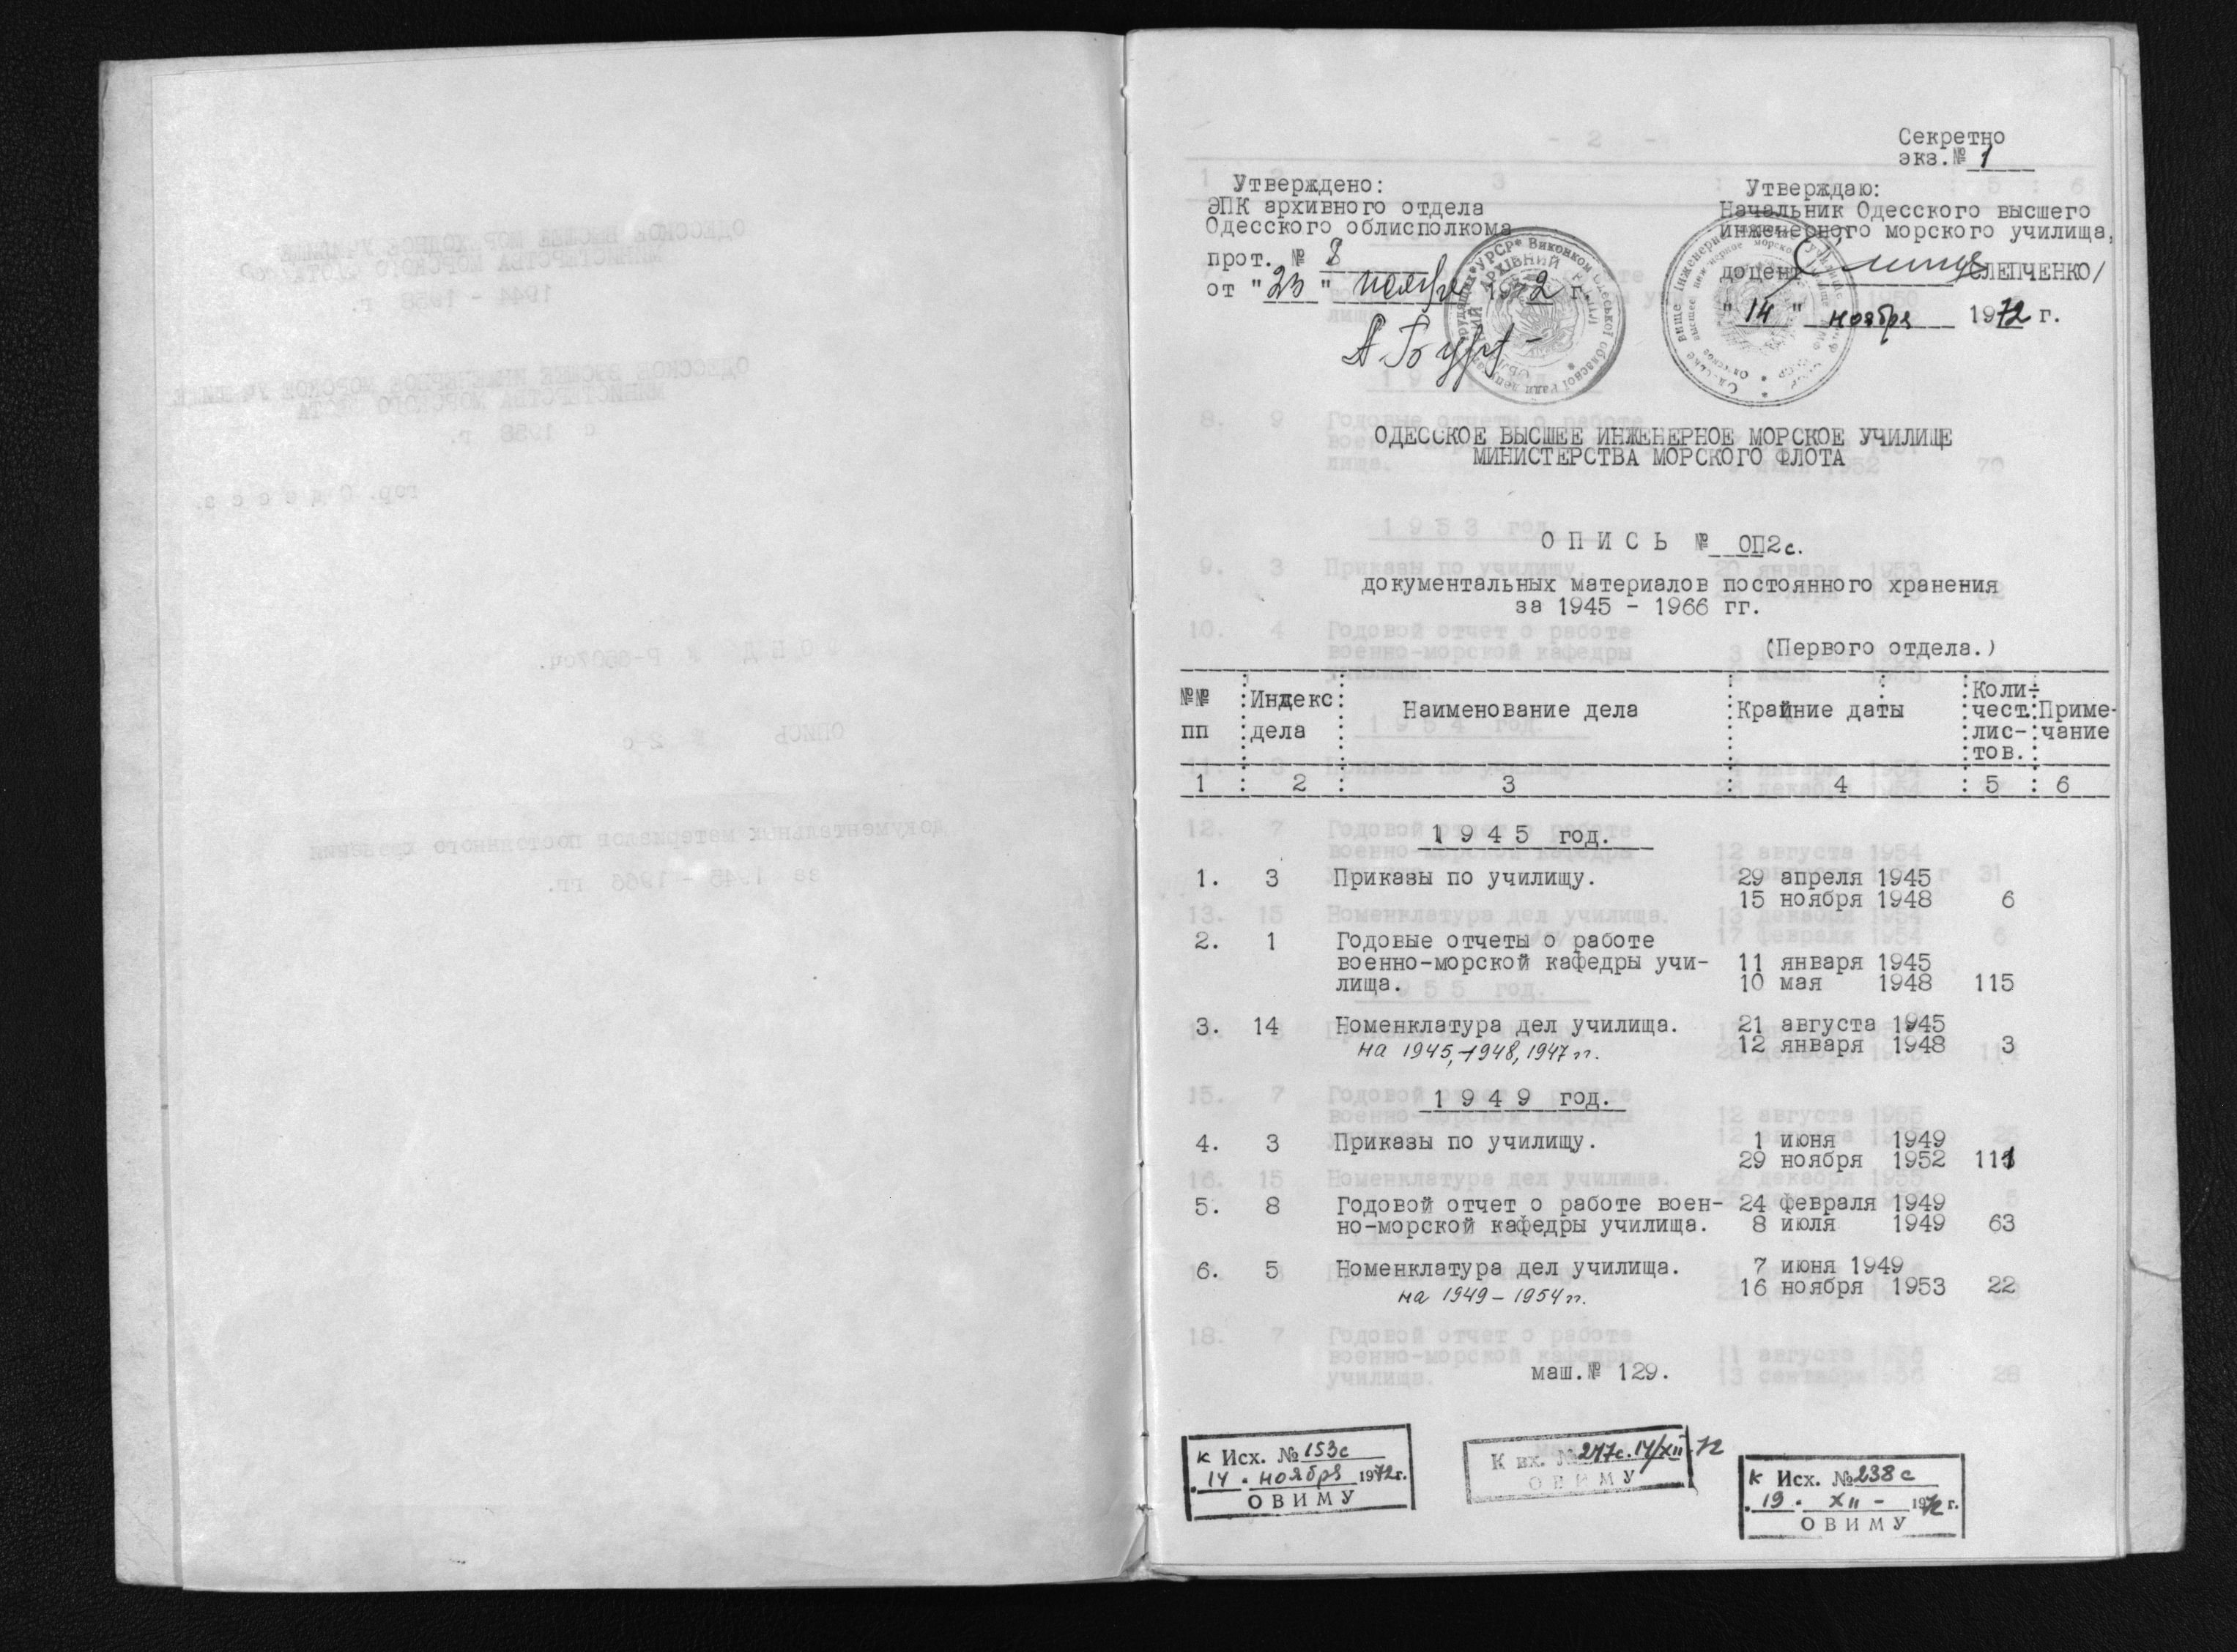 Секретно
экз.№ 1
Утверждено:
ЭПК архивного отдела
Одесского облисполкома
прот. № 8
от "23" ноября 1972 г.
Утверждаю:
Начальник Одесского высшего
инженерного морского училища,
доцент СЛЕПЧЕНКО/
"14" ноября 1972 г.
ОДЕССКОЕ ВЫСШЕЕ ИНЖЕНЕРНОЕ МОРСКОЕ УЧИЛИЩЕ
МИНИСТЕРСТВА МОРСКОГО ФЛОТА
О П И С Ь № ОП2с.
документальных материалов постоянного хранения
за 1945 - 1966 гг.
(Первого отдела.)
№№ пп : Индекс дела : Наименование дела : Крайние даты : Коли-чест. лис-тов. : Приме-чание
1 : 2 : 3 : 4 : 5 : 6
1 9 4 5 год.
1. 3 Приказы по училищу. 29 апреля 1945
15 ноября 1948 6
2. 1 Годовые отчеты о работе
военно-морской кафедры учи- 11 января 1945
лища. 10 мая 1948 115
3. 14 Номенклатура дел училища. 21 августа 1945
на 1945,-1948, 1947 гг. 12 января 1948 3
1 9 4 9 год.
4. 3 Приказы по училищу. 1 июня 1949
29 ноября 1952 111
5. 8 Годовой отчет о работе воен- 24 февраля 1949
но-морской кафедры училища. 8 июля 1949 63
6. 5 Номенклатура дел училища. 7 июня 1949
на 1949 - 1954 гг. 16 ноября 1953 22
маш.№ 129.
к Исх. № 153с
"14" ноября 1972г.
ОВИМУ
К вх. № 247с. 14/XII-72
ОВИМУ
к Исх. № 238с
"19" XII - 1972 г.
ОВИМУ